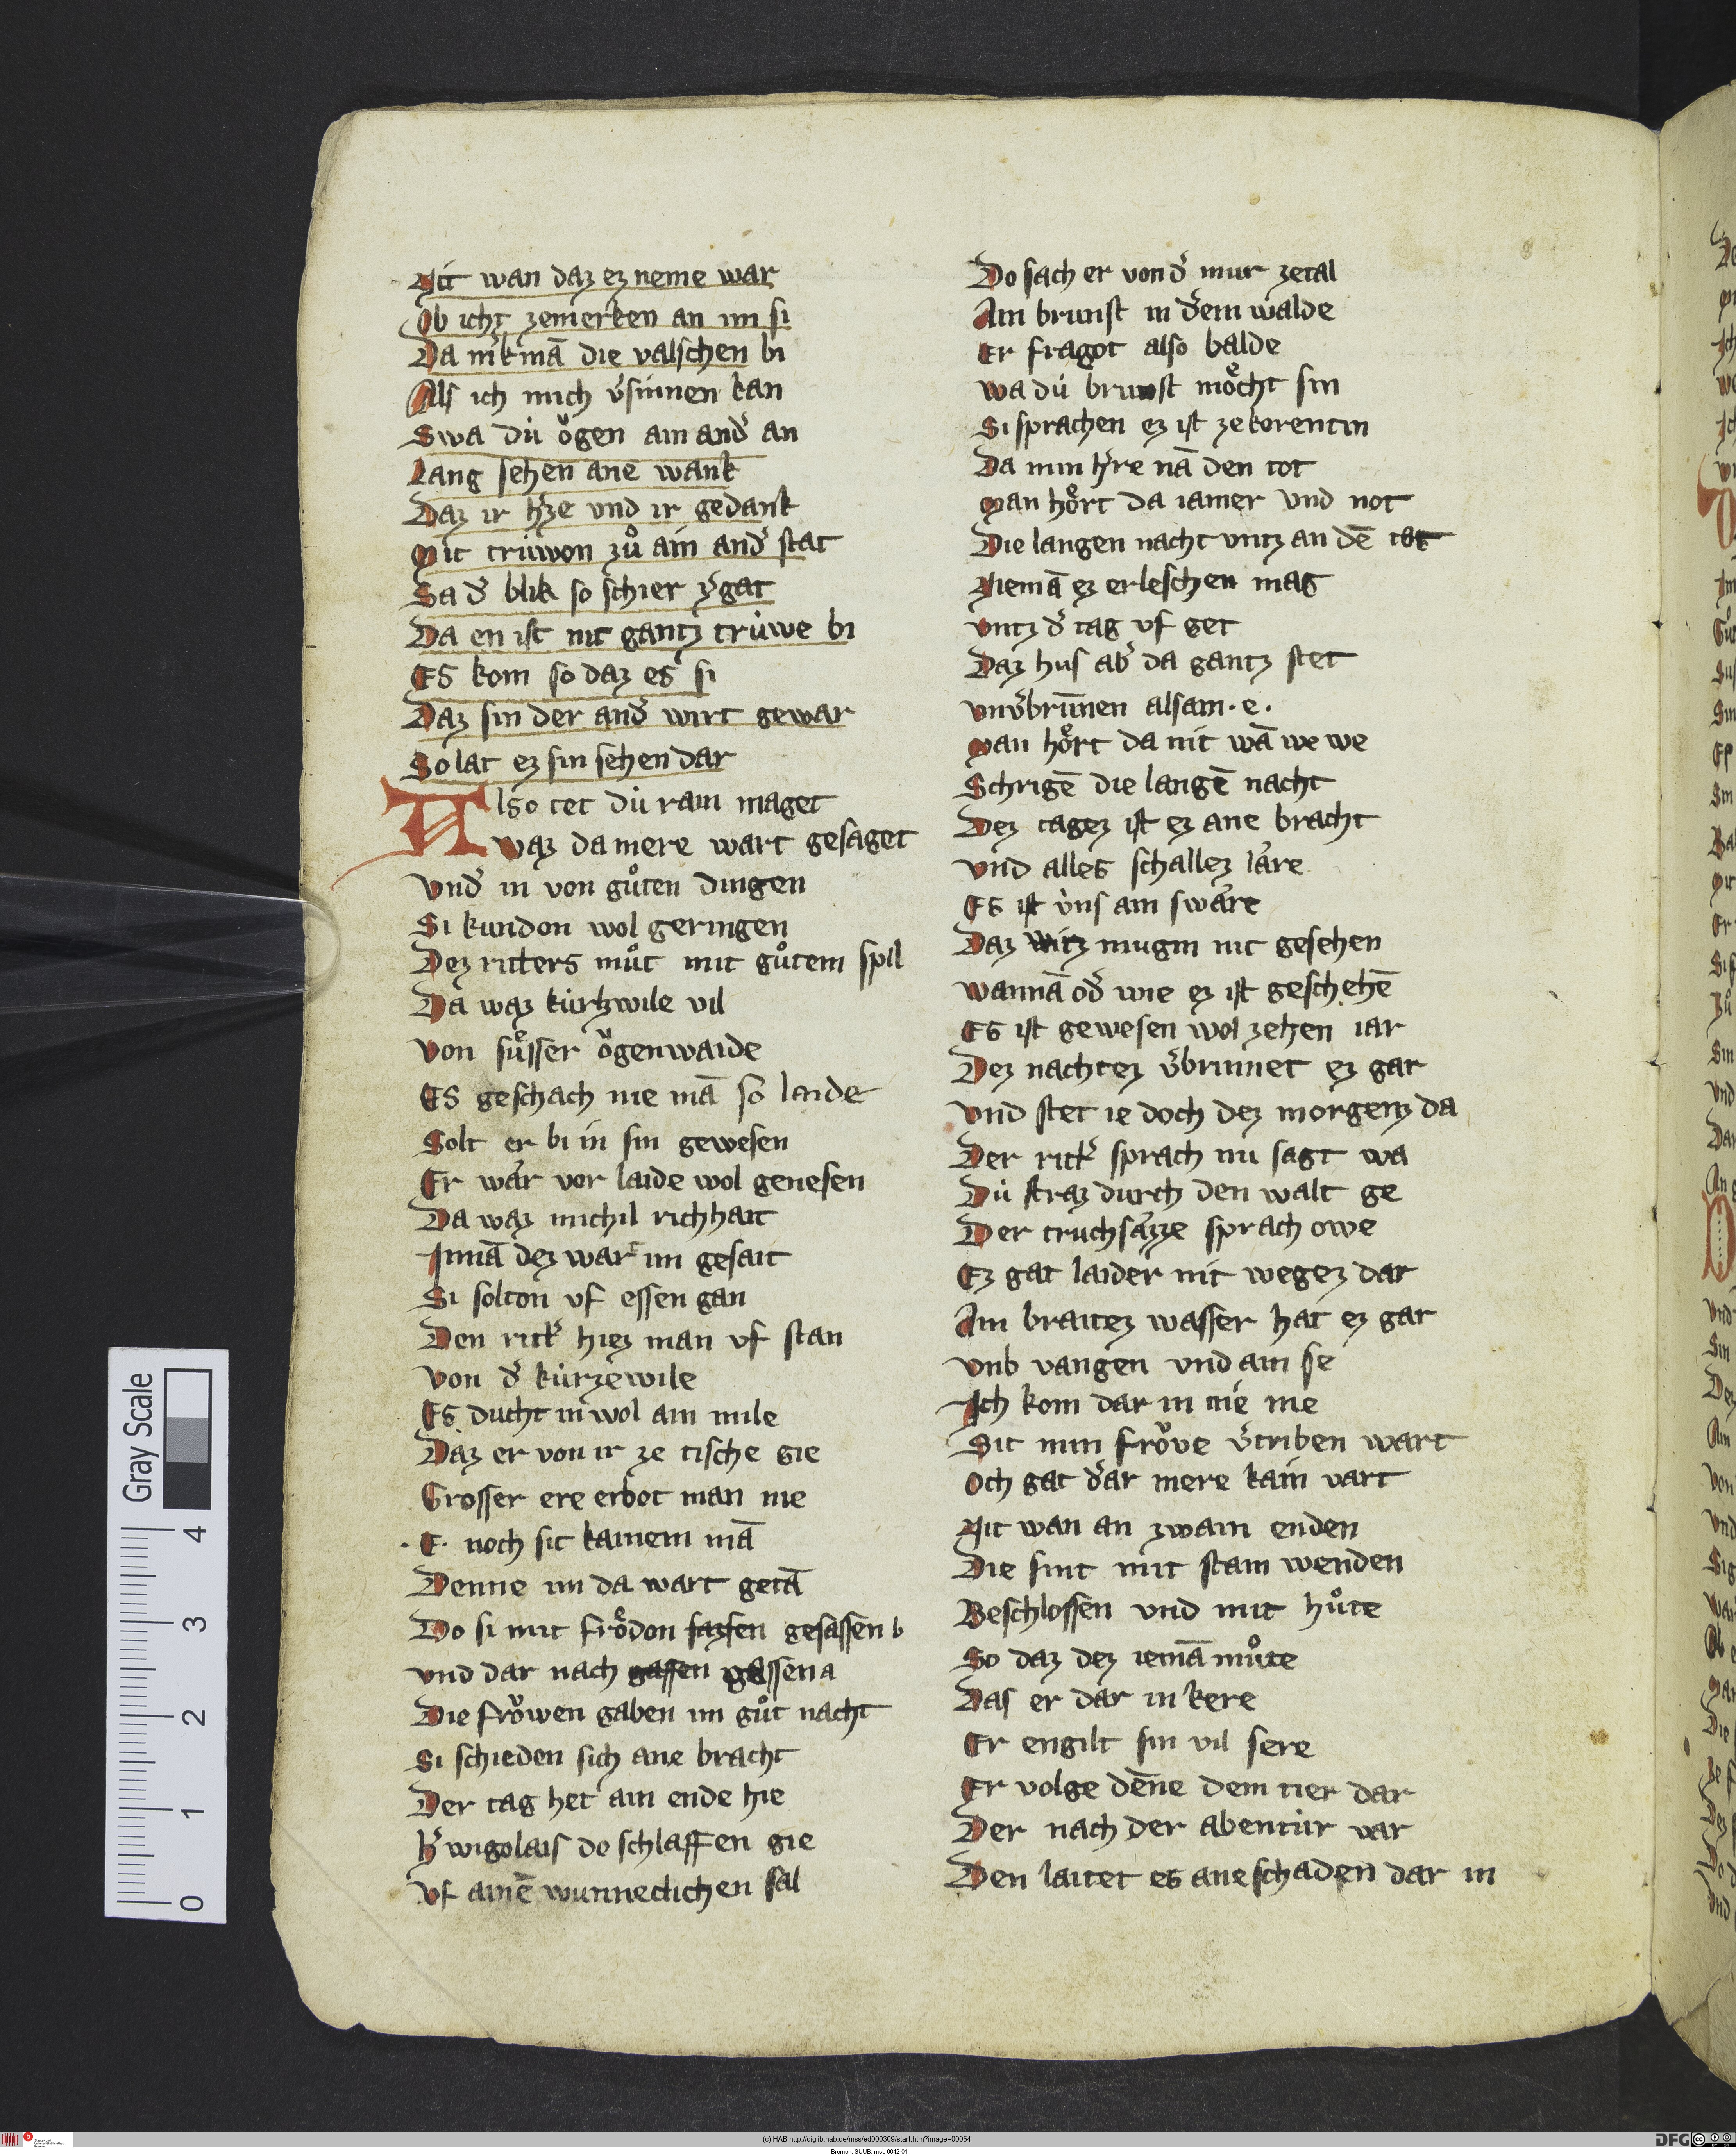 Nit wan daz ez neme war
Ob icht zemerken an im si
Da m̾k mā die valschen bi
Als ich mich v̾sinnen kan
Swa dù ŏgen ain and̾ an
Lang sehen ane wank
Daz ir h̾ze vnd ir gedank
Mit trùwon zů ain and̾ stat
Sa d̾ blik so schier v̾gat
Da en ist nit gantz trùwe bi
Es kom so daz es si
Daz sin der and̾ wirt gewar
So lat ez sin sehen dar
Also tet dù rain maget
waz da mere wart gesaget
Vnd̾ in von gůten dingen
Si kundon wol geringen
Dez ritters můt mit gůtem spil
Da waz kùrtzwile vil
Von sůsser ŏgenwaide
Es geschach nie mā so laide
Solt er bi in sin gewesen
Er wår vor laide wol genesen
Da waz michil richhait
Innā dez wart im gesait
Si solton vf essen gan
Den ritt̾ hiez man vf stan
Von d̾ kùrzewile
Es ducht in wol ain mile
Daz er von ir ze tische gie
Grosser ere erbot man nie
·E· noch sit kainem mā
Denne im da wart getā
Do si mit frŏdon sazsen gesassen b
vnd dar nach gassen gassen a
Die frŏwen gaben im gůt nacht
Si schieden sich ane bracht
Der tag het ain ende hie
h̾ wigolais do schlaffen gie
Vf ainē wunneclichen sal
Do sach er von d̾ mur zetal
Ain brunst in d̾em walde
Er fragot also balde
wa dù brunst mŏcht sin
Si sprachen ez ist ze korentin
Da min h̾re nā den tot
Man hŏrt da iamer vnd not
Die langen nacht vntz an dē tat
Niemā ez erleschen mag
vntz d̾ tag vf get
Daz hus ab̾ da gantz stet
vnv̾brunnen alsam · e ·
Man hŏrt da nit wā we we
Schrigē die langē nacht
Dez tagez ist ez ane bracht
vnd alles schallez låre
Es ist ùns ain swåre
Daz wirz mugin nit gesehen
wannā od̾ wie ez ist geschehē
Es ist gewesen wol zehen iar
Dez nachtez v̾brinnet ez gar
vnd stet ie doch dez morgenz da
Der ritt̾ sprach nu sagt wa
Dù straz durch den walt ge
Der truchsåzze sprach owe
Ez gat laider nit wegez dar
Ain braitez wasser hat ez gar
vnb vangen vnd ain se
Ich kom dar in nie me
Sit min frŏve v̾triben wart
Och gat d̾ar mere kain vart
Nit wan an zwain enden
Die sint mit stain wenden
Beschlossen vnd mit hůte
So daz dez iemā můte
Das er dar in kere
Er engilt sin vil sere
Er volge dēne dem tier dar
Der nach der abentùr var
Den laitet es ane schaden dar in
Gray Scale
4
3
2
1
0
(c) HAB http://diglib.hab.de/mss/ed000309/start.htm?image=00054
Bremen, SUUB, msb 0042-01
DFG